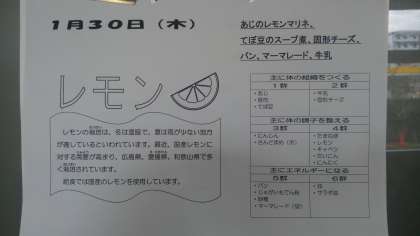 1月30日（木）
あじのレモンマリネ、
てぼ豆のスープ煮、固形チーズ、
パン、マーマレード、牛乳
レモン
レモンの栽培は、冬は温暖で、夏は雨が少ない地方
が適しているといわれています。最近、国産レモンに
対する需要が高まり、広島県、愛媛県、和歌山県で多
く栽培されています。
給食では国産のレモンを使用しています。
主に体の組織をつくる
1群 2群
・あじ ・牛乳
・豚肉 ・固形チーズ
・てぼ豆
主に体の調子を整える
3群 4群
・にんじん ・たまねぎ
・さんどまめ（冷） ・レモン
・キャベツ
・だいこん
・にんにく
主にエネルギーになる
5群 6群
・パン ・油
・じゃがいもでん粉 ・サラダ油
・砂糖
・マーマレード（袋）